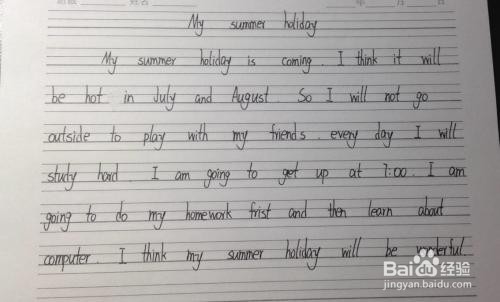 My summer holiday
My summer holiday is coming. I think it will
be hot in July and August. So I will not go
outside to play with my friends. every day I will
study hard. I am going to get up at 7:00. I am
going to do my homework frist and then learn about
computer. I think my summer holiday will be wonderful.
Baidu 经验
jingyan.baidu.com